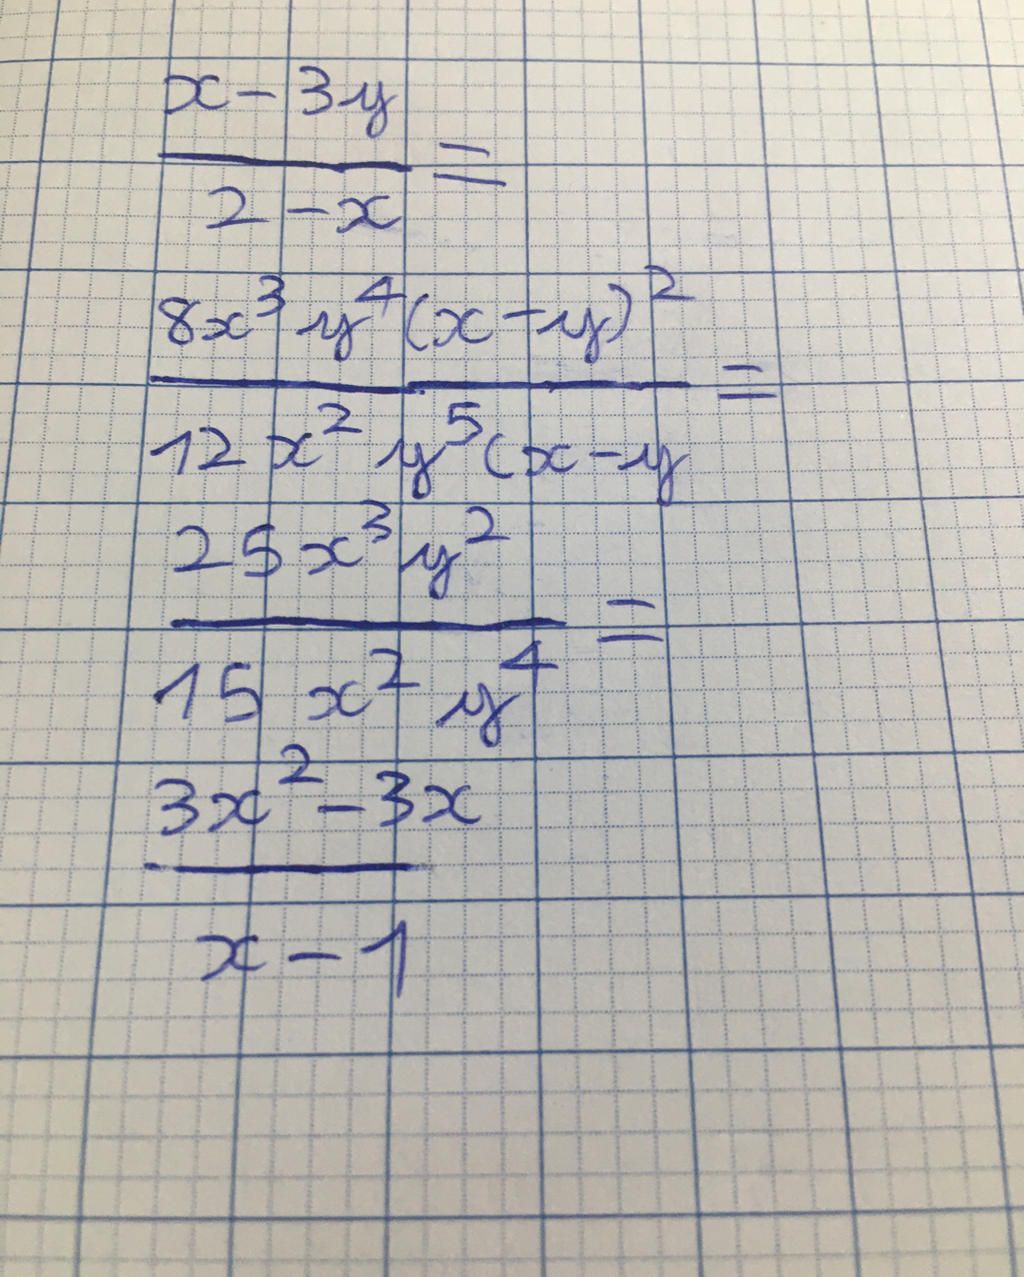 x - 3y
2 - x =
8x³y⁴(x-y)²
12x²y⁵(x-y =
25x³y²
15x²y⁴ =
3x² - 3x
x - 1